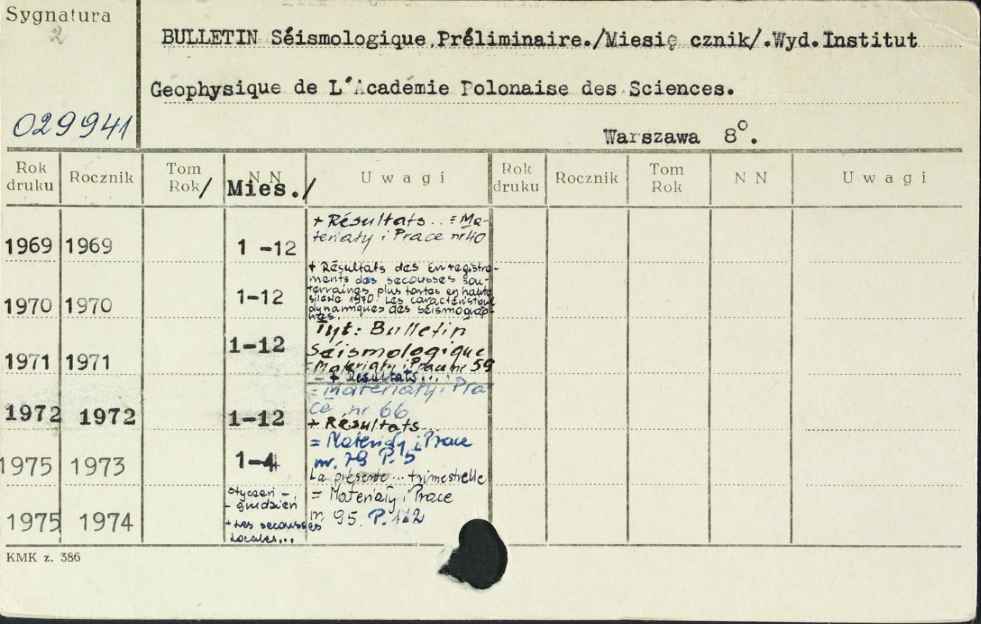 Sygnatura
2
BULLETIN Séismologique.Préliminaire./Miesię cznik/.Wyd.Institut
Geophysique de L'Académie Polonaise des Sciences.
029941
Warszawa 8°.
Rok druku Rocznik Tom Rok/ NN Mies./ Uwagi Rok druku Rocznik Tom Rok NN Uwagi
1969 1969 1 -12 + Résultats... = Ma-
teriały i Prace nr 40
1970 1970 1-12 + Résultats des enregistre-
ments des secousses sou-
terraines plus fortes en haute
silésie 1970. Les caractéristique
dynamiques des séismograp-
hes.
1971 1971 1-12 Tyt: Bulletin
Séismologique
= Materiały i Prace nr 59
+ Résultats...
1972 1972 1-12 = Materiały i Pra
ce nr 66
+ Résultats...
1975 1973 1-4 = Materiały i Prace
nr. 79 P. 5
La présente... trimestrielle
1975 1974 styczeń -
- grudzień
+ Les secousses
locales... = Materiały i Prace
nr 95. P. 112
KMK z. 386